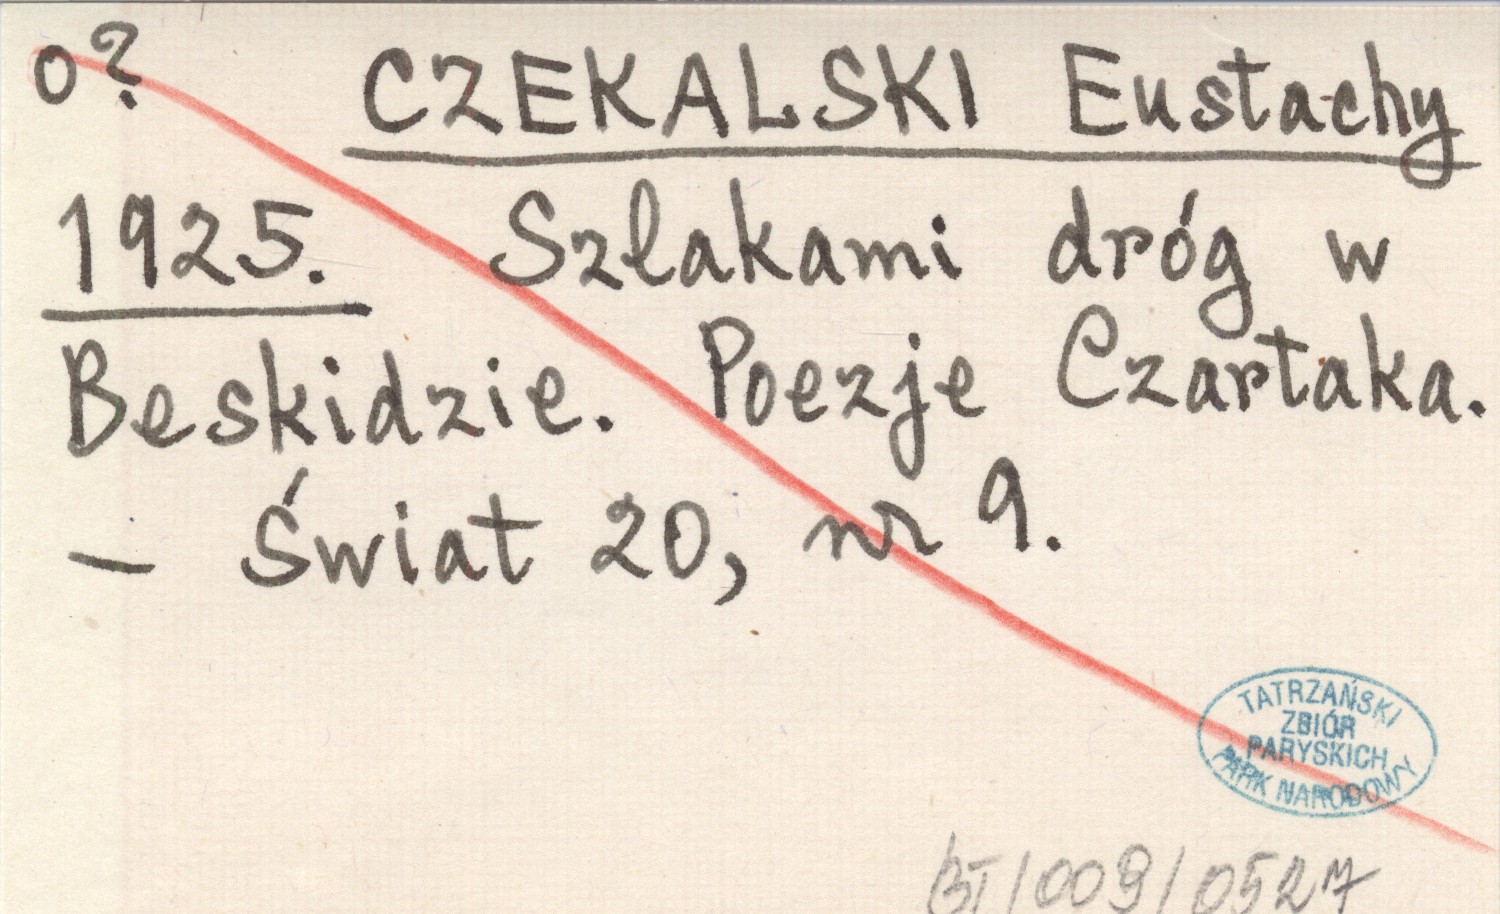 o?
CZEKALSKI Eustachy
1925. Szlakami dróg w
Beskidzie. Poezje Czartaka.
– Świat 20, nr 9.
TATRZAŃSKI
ZBIÓR
PARYSKICH
PARK NARODOWY
BT/009/0527